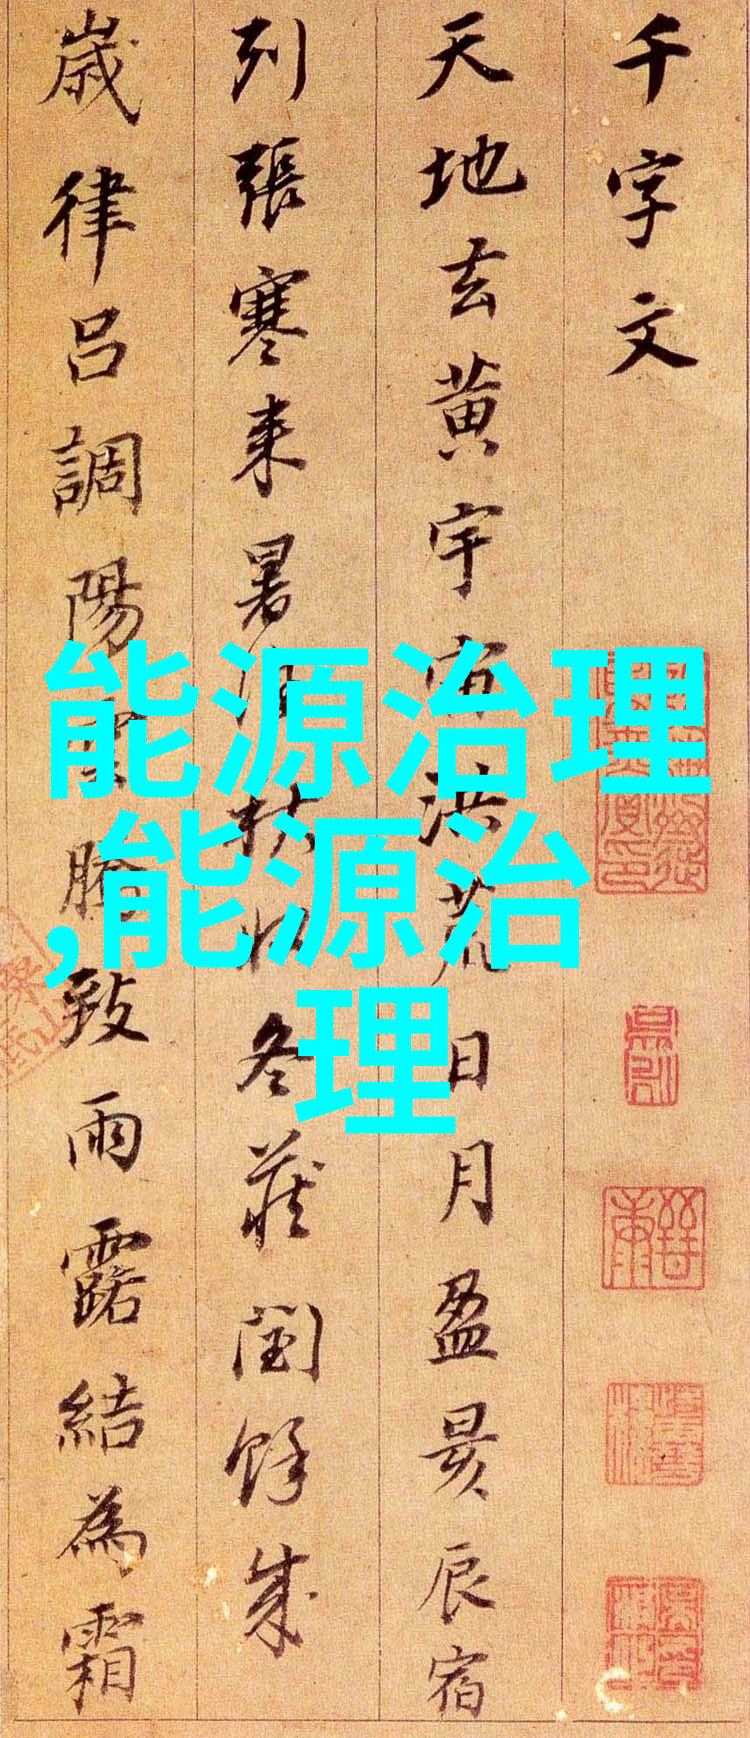 千字文
天地玄黄宇宙洪荒日月盈昃辰宿
列張寒来暑往秋收冬蔵閏餘成
歳律吕調陽雲騰致雨露結為霜
能源治理
,能源治
理